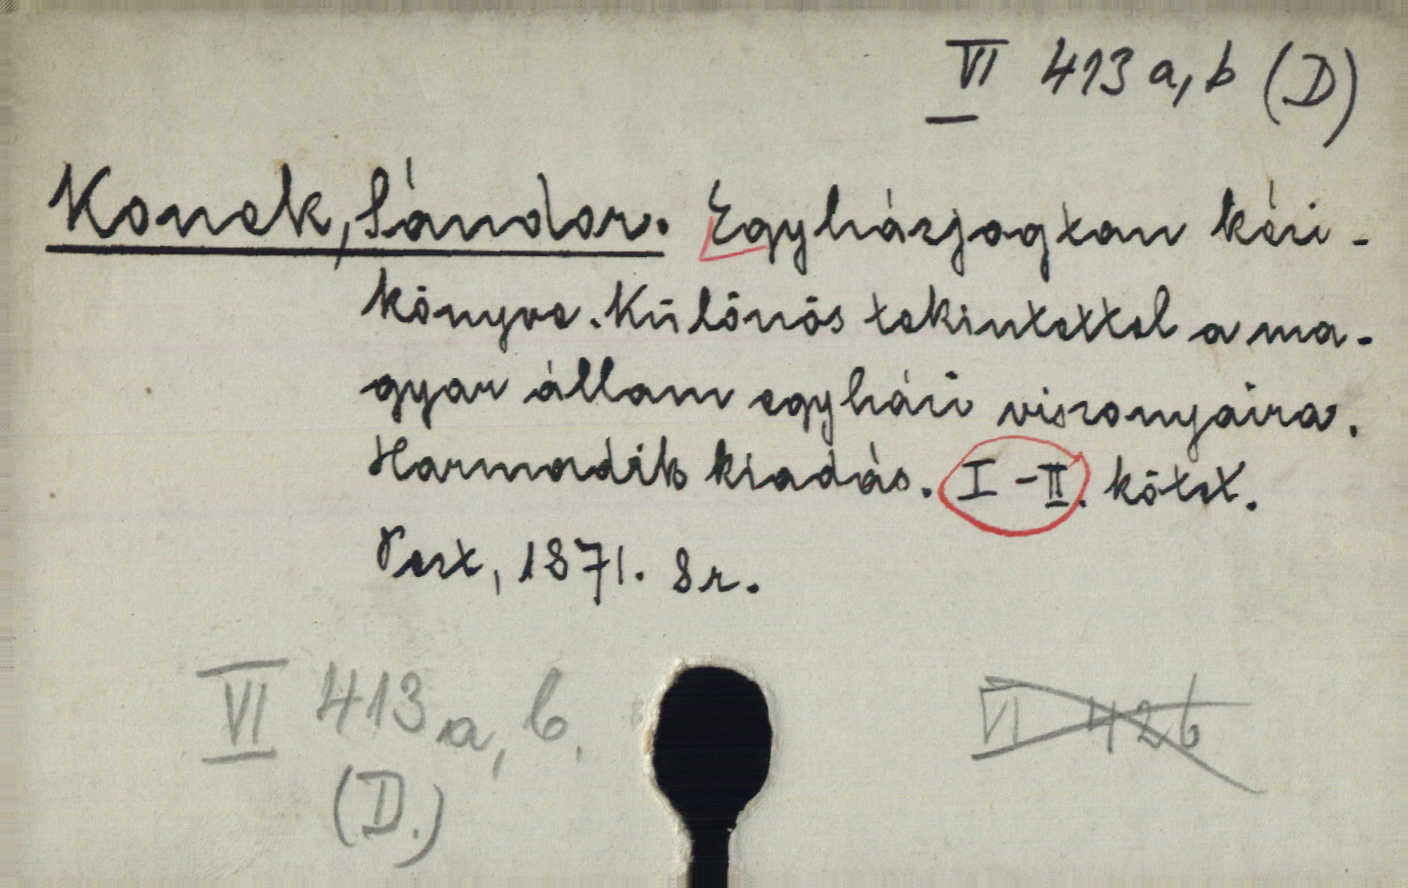 VI 413 a, b (D)
Konek, Sándor. Egyházjogtan kézi-
könyve. Különös tekintettel a ma-
gyar állam egyházi viszonyaira.
Harmadik kiadás. I-II. kötet.
Pest, 1871. 8r.
VI 413 a, b.
(D.)
VI 426